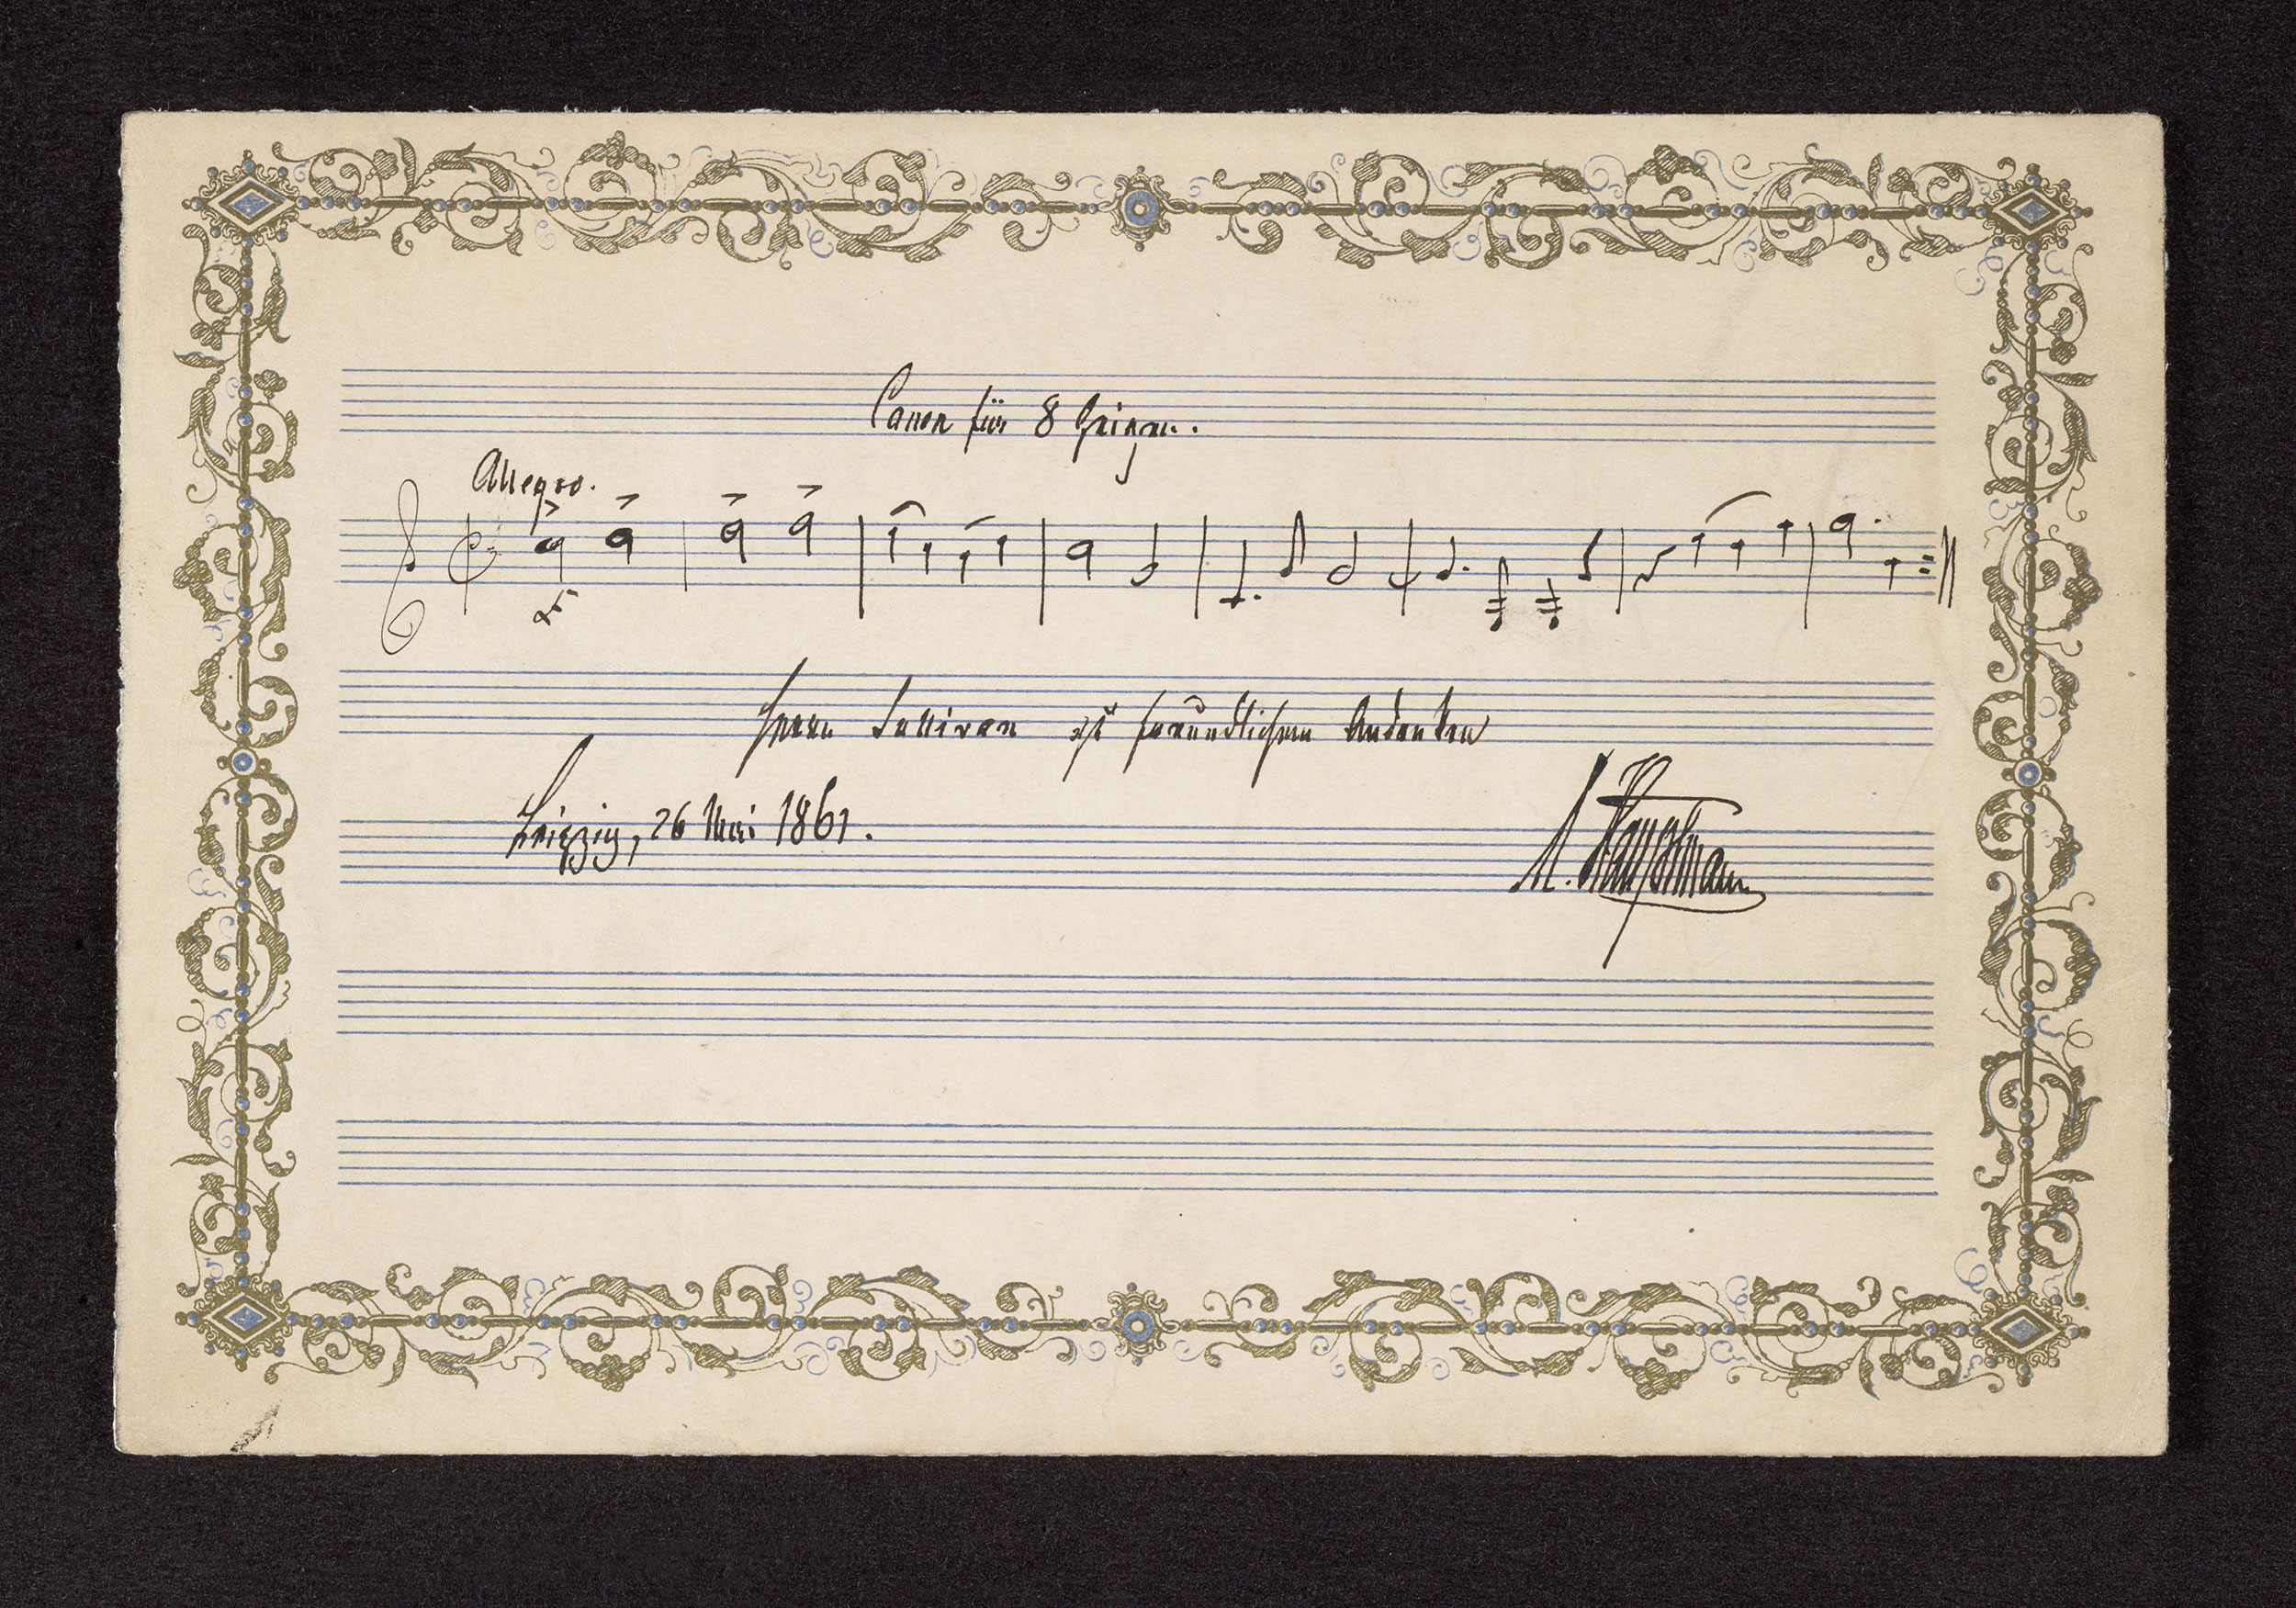 Canon für 8 Geigen.
Allegro.
Herrn Sullivan zu freundlichem Andenken
Leipzig, 26 Mai 1861.
M. Hauptmann